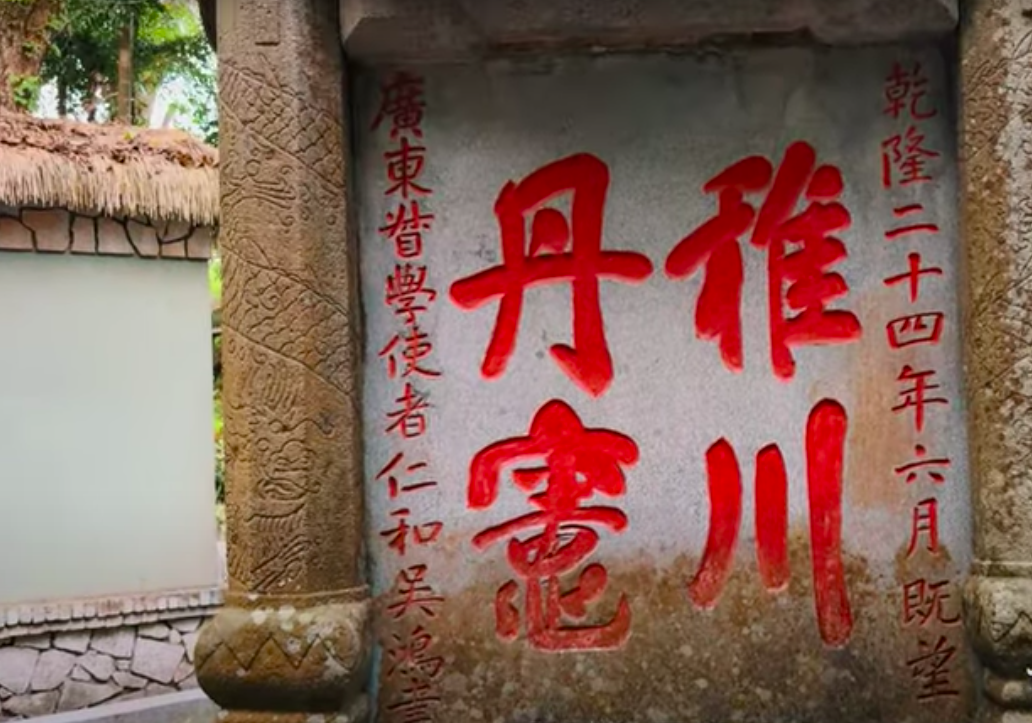 乾隆二十四年六月既望
稚川
丹竈
廣東督學使者仁和吳鴻書